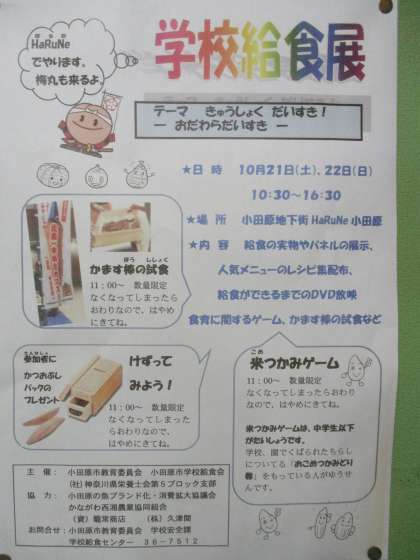 HaRuNe
はるね
でやります、
梅丸も来るよ。
学校給食展
テーマ　きゅうしょく だいすき！
－ おだわらだいすき －
★日 時　10月21日(土)、22日(日)
10:30～16:30
★場 所　小田原地下街 HaRuNe 小田原
★内 容　給食の実物やパネルの展示、
人気メニューのレシピ集配布、
給食ができるまでのDVD放映
食育に関するゲーム、かます棒の試食など
かます棒の試食
ぼう ししょく
11：00～　数量限定
なくなってしまったら
おわりなので、はやめ
にきてね。
さんかしゃ
参加者に
かつおぶし
パックの
プレゼント
けずって
みよう！
11：00～　数量限定
なくなってしまった
らおわりなので、
はやめにきてね。
こめ
米つかみゲーム
11：00～　数量限定
なくなってしまったらおわり
なので、はやめにきてね。
米つかみゲームは、中学生以下
がたいしょうです。
学校、園でくばられたちらし
についてる「おこめつかみどり
券」をもっている人がゆうせ
んです。
主 催：　小田原市教育委員会　小田原市学校給食会
(社) 神奈川県栄養士会第５ブロック支部
協 力：　小田原の魚ブランド化・消費拡大協議会
かながわ西湘農業協同組合
(資) 籠常商店　　(株) 久津間
お問合せ：　小田原市教育委員会　学校安全課
学校給食センター　３６-７５１２